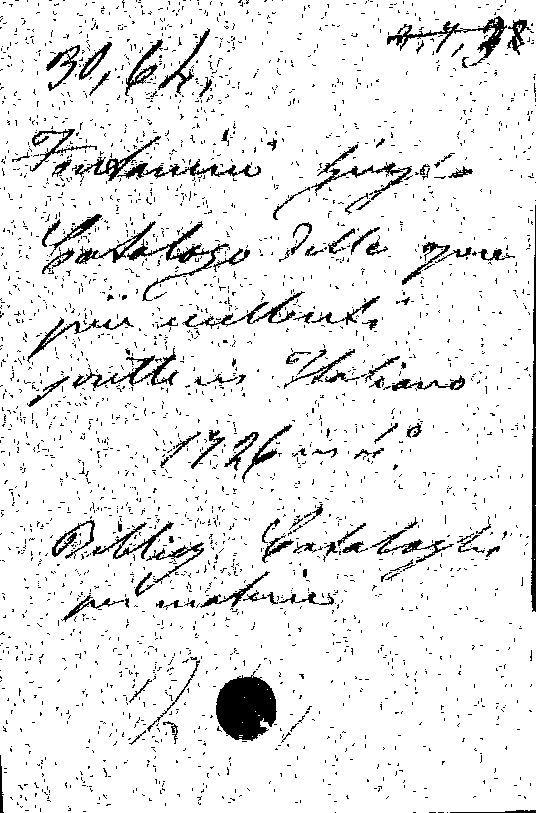 30, 6 L,
3, 4, 38
Fontanini Giusto
Catalogo delle opere
più eccellenti
scritte in Italiano
1726 in 4°
Bibliog Cataloghi
per materie